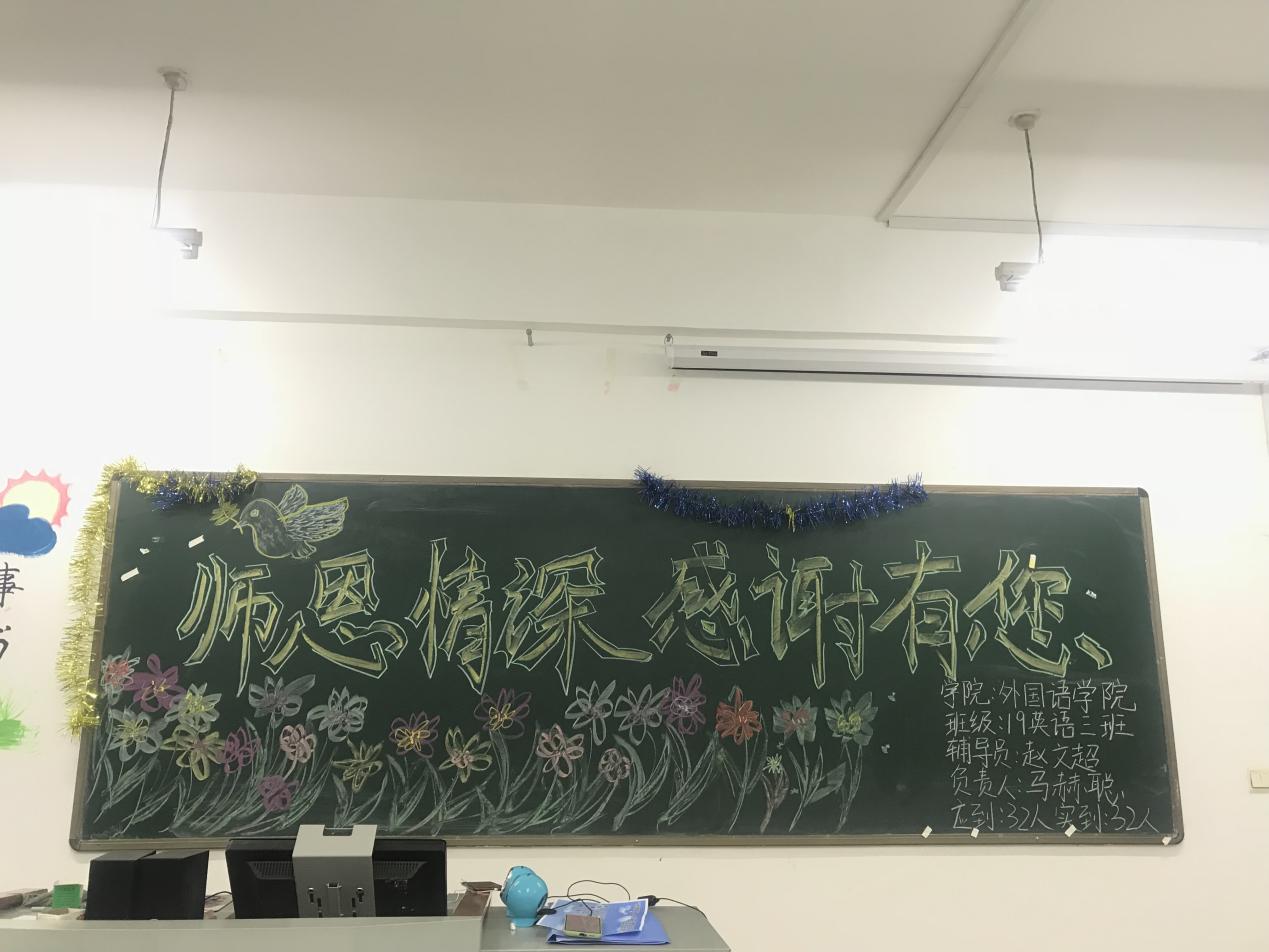 师恩情深 感谢有您
学院:外国语学院
班级:19英语二班
辅导员:赵文超
负责人:马赫聪
应到:32人实到:32人
事